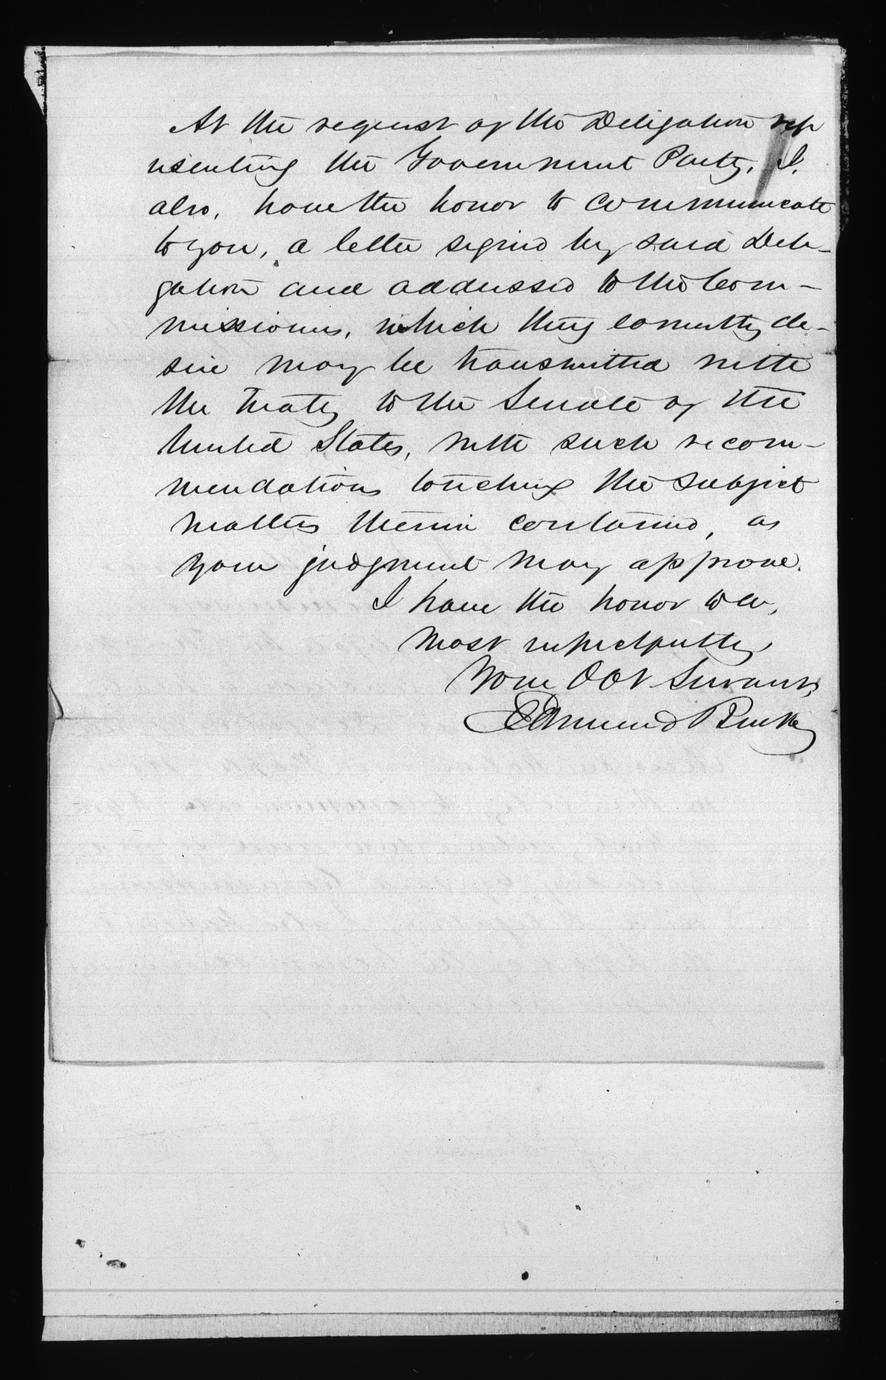 At the request of the Deligation rep
resenting the Government Party, I,
also, have the honor to communicate
to you, a letter signed by said Deli-
gation and addressed to the Com-
missioner, which they earnestly de-
sire may be transmitted with
the treaty to the Senate of the
United States, with such recom-
mendations touching the subject
matters therein contained, as
your judgment may approve.
I have the honor to be,
Most respectfully
Your Obt Servant,
Edmund Burke